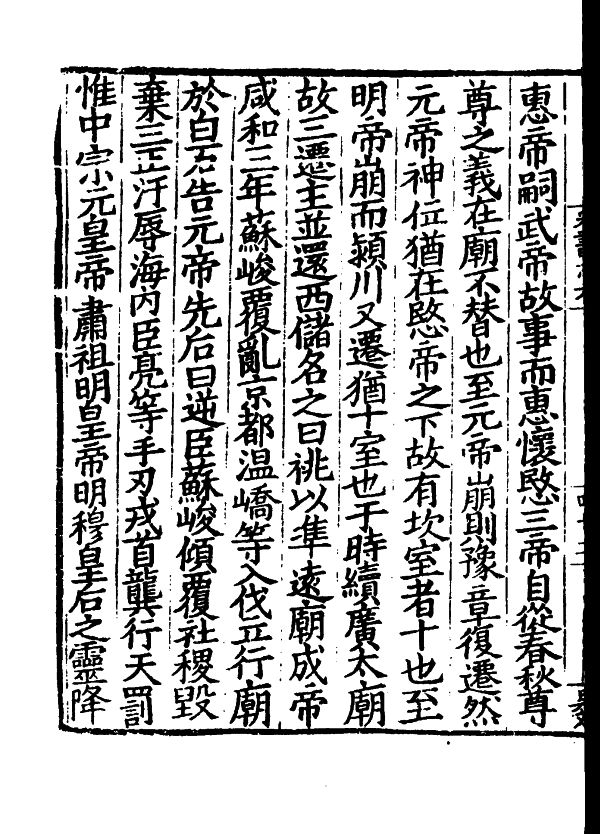 惠帝嗣武帝故事而惠懷愍三帝自從春秋尊
尊之義在廟不替也至元帝崩則豫章復遷然
元帝神位猶在愍帝之下故有坎室者十也至
明帝崩而潁川又遷猶十室也于時續廣太廟
故三遷主並還西儲名之曰祧以準遠廟成帝
咸和三年蘇峻覆亂京都温嶠等入伐立行廟
於白石告元帝先后曰逆臣蘇峻傾覆社稷毀
棄三正汙辱海内臣亮等手刃戎首龔行天罰
惟中宗元皇帝肅祖明皇帝明穆皇后之靈降